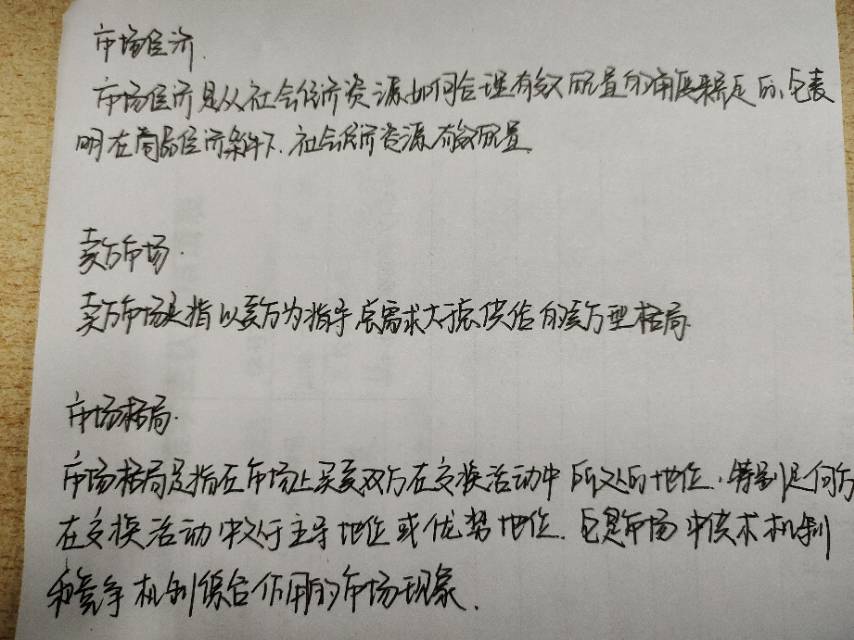 市场经济.
市场经济是从社会经济资源如何合理有效配置的角度来界定的、它表
明在商品经济条件下、社会经济资源有效配置.
卖方市场.
卖方市场是指以卖方为指导总需求大于总供给的卖方型格局.
市场格局.
市场格局是指在市场上买卖双方在交换活动中所处的地位.特别是何方
在交换活动中处于主导地位或优势地位.它是市场中供求机制
和竞争机制综合作用的市场现象.